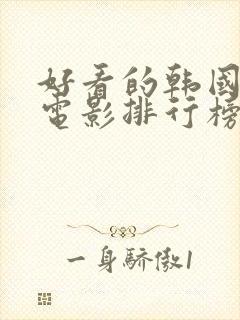 好看的韩國
電影排行榜
一身驕傲1